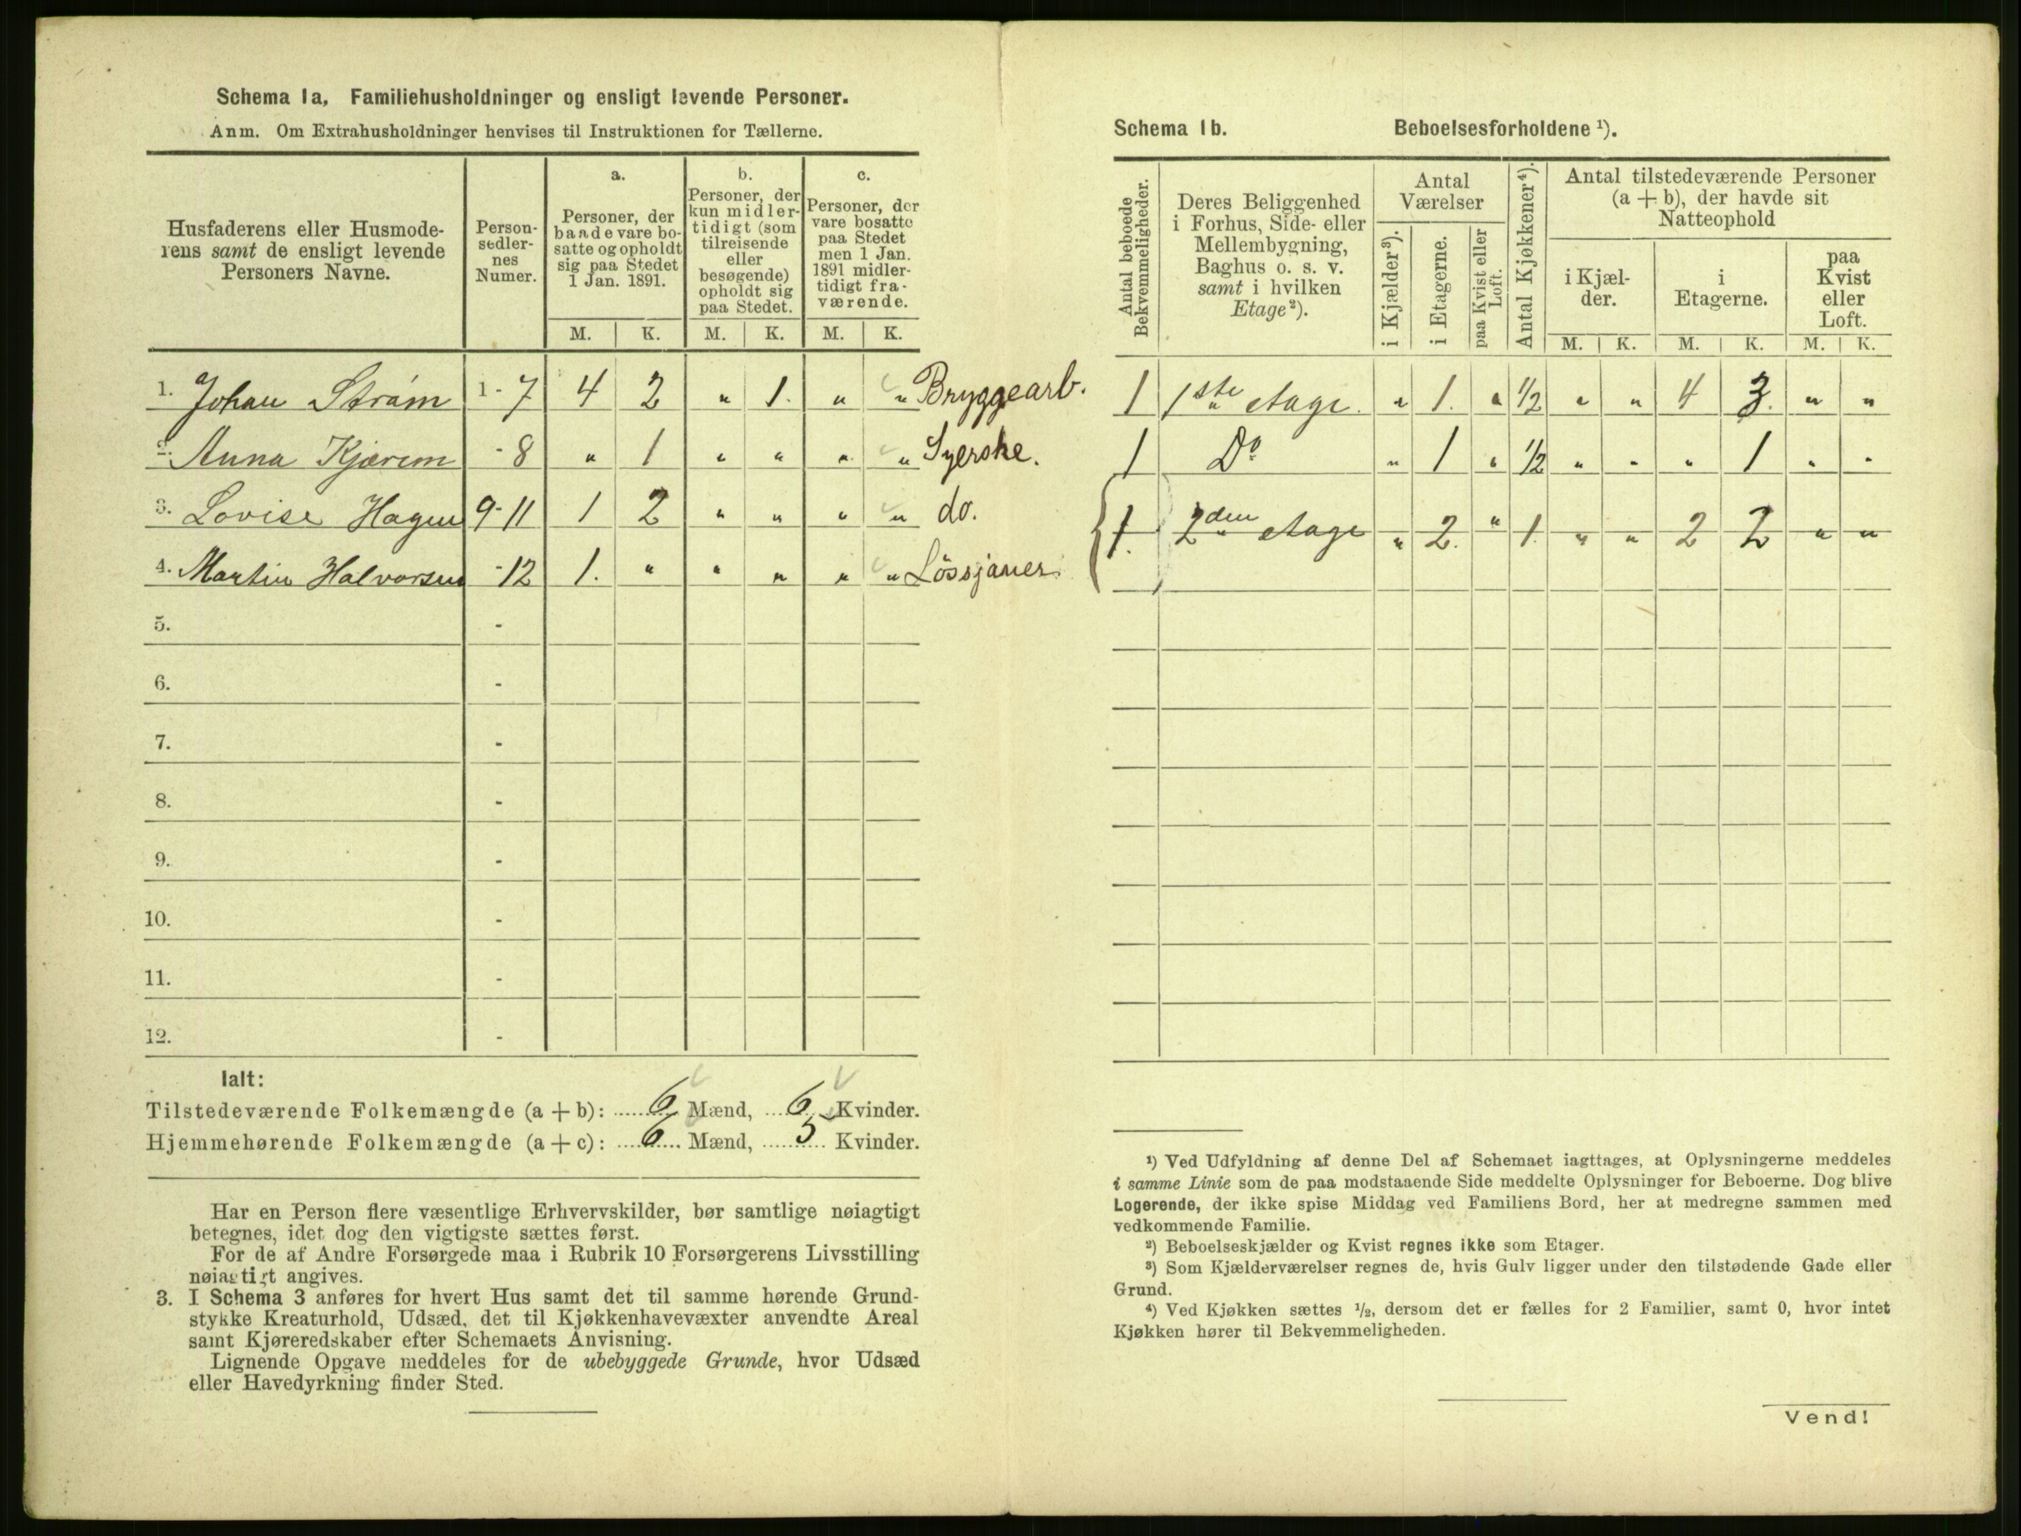 Schema 1a, Familiehusholdninger og ensligt levende Personer.
Anm. Om Extrahusholdninger henvises til Instruktionen for Tællerne.
Husfaderens eller Husmode-
rens samt de ensligt levende
Personers Navne.
Person-
sedler-
nes
Numer.
a.
Personer, der
baade vare bo-
satte og opholdt
sig paa Stedet
1 Jan. 1891.
b.
Personer, der
kun midler-
tidigt (som
tilreisende
eller
besøgende)
opholdt sig
paa Stedet.
c.
Personer, der
vare bosatte
paa Stedet
men 1 Jan.
1891 midler-
tidigt fra-
værende.
M. K. M. K. M. K.
1. Johan Strøm 1 - 7 4 2 " 1. " " Bryggearb.
2. Anna Kjærem - 8 " 1 " " " " Syerske.
3. Lovise Hagen 9 - 11 1 2 " " " " do.
4. Martin Halvorsen - 12 1. " " " " " Løssjauer.
5. -
6. -
7. -
8. -
9. -
10. -
11. -
12. -
Ialt:
Tilstedeværende Folkemængde (a + b): 6 Mænd, 6 Kvinder.
Hjemmehørende Folkemængde (a + c): 6 Mænd, 5 Kvinder.
Har en Person flere væsentlige Erhvervskilder, bør samtlige nøiagtigt
betegnes, idet dog den vigtigste sættes først.
For de af Andre Forsørgede maa i Rubrik 10 Forsørgerens Livsstilling
nøiagtigt angives.
3. I Schema 3 anføres for hvert Hus samt det til samme hørende Grund-
stykke Kreaturhold, Udsæd, det til Kjøkkenhavevæxter anvendte Areal
samt Kjøreredskaber efter Schemaets Anvisning.
Lignende Opgave meddeles for de ubebyggede Grunde, hvor Udsæd
eller Havedyrkning finder Sted.
Schema 1b. Beboelsesforholdene ¹).
Antal beboede
Bekvemmeligheder.
Deres Beliggenhed
i Forhus, Side- eller
Mellembygning,
Baghus o. s. v.
samt i hvilken
Etage²).
Antal
Værelser
i Kjælder³).
i Etagerne.
paa Kvist eller
Loft.
Antal Kjøkkener⁴).
Antal tilstedeværende Personer
(a + b), der havde sit
Natteophold
i Kjæl-
der.
i
Etagerne.
paa
Kvist
eller
Loft.
M. K. M. K. M. K.
1 1ste etage. " 1. " 1/2 " " 4 3. " "
1 Do " 1 " 1/2 " " " 1 " "
1. 2den etage " 2. " 1. " " 2 2 " "
¹) Ved Udfyldning af denne Del af Schemaet iagttages, at Oplysningerne meddeles
i samme Linie som de paa modstaaende Side meddelte Oplysninger for Beboerne. Dog blive
Logerende, der ikke spise Middag ved Familiens Bord, her at medregne sammen med
vedkommende Familie.
²) Beboelseskjælder og Kvist regnes ikke som Etager.
³) Som Kjælderværelser regnes de, hvis Gulv ligger under den tilstødende Gade eller
Grund.
⁴) Ved Kjøkken sættes ½, dersom det er fælles for 2 Familier, samt 0, hvor intet
Kjøkken hører til Bekvemmeligheden.
Vend!